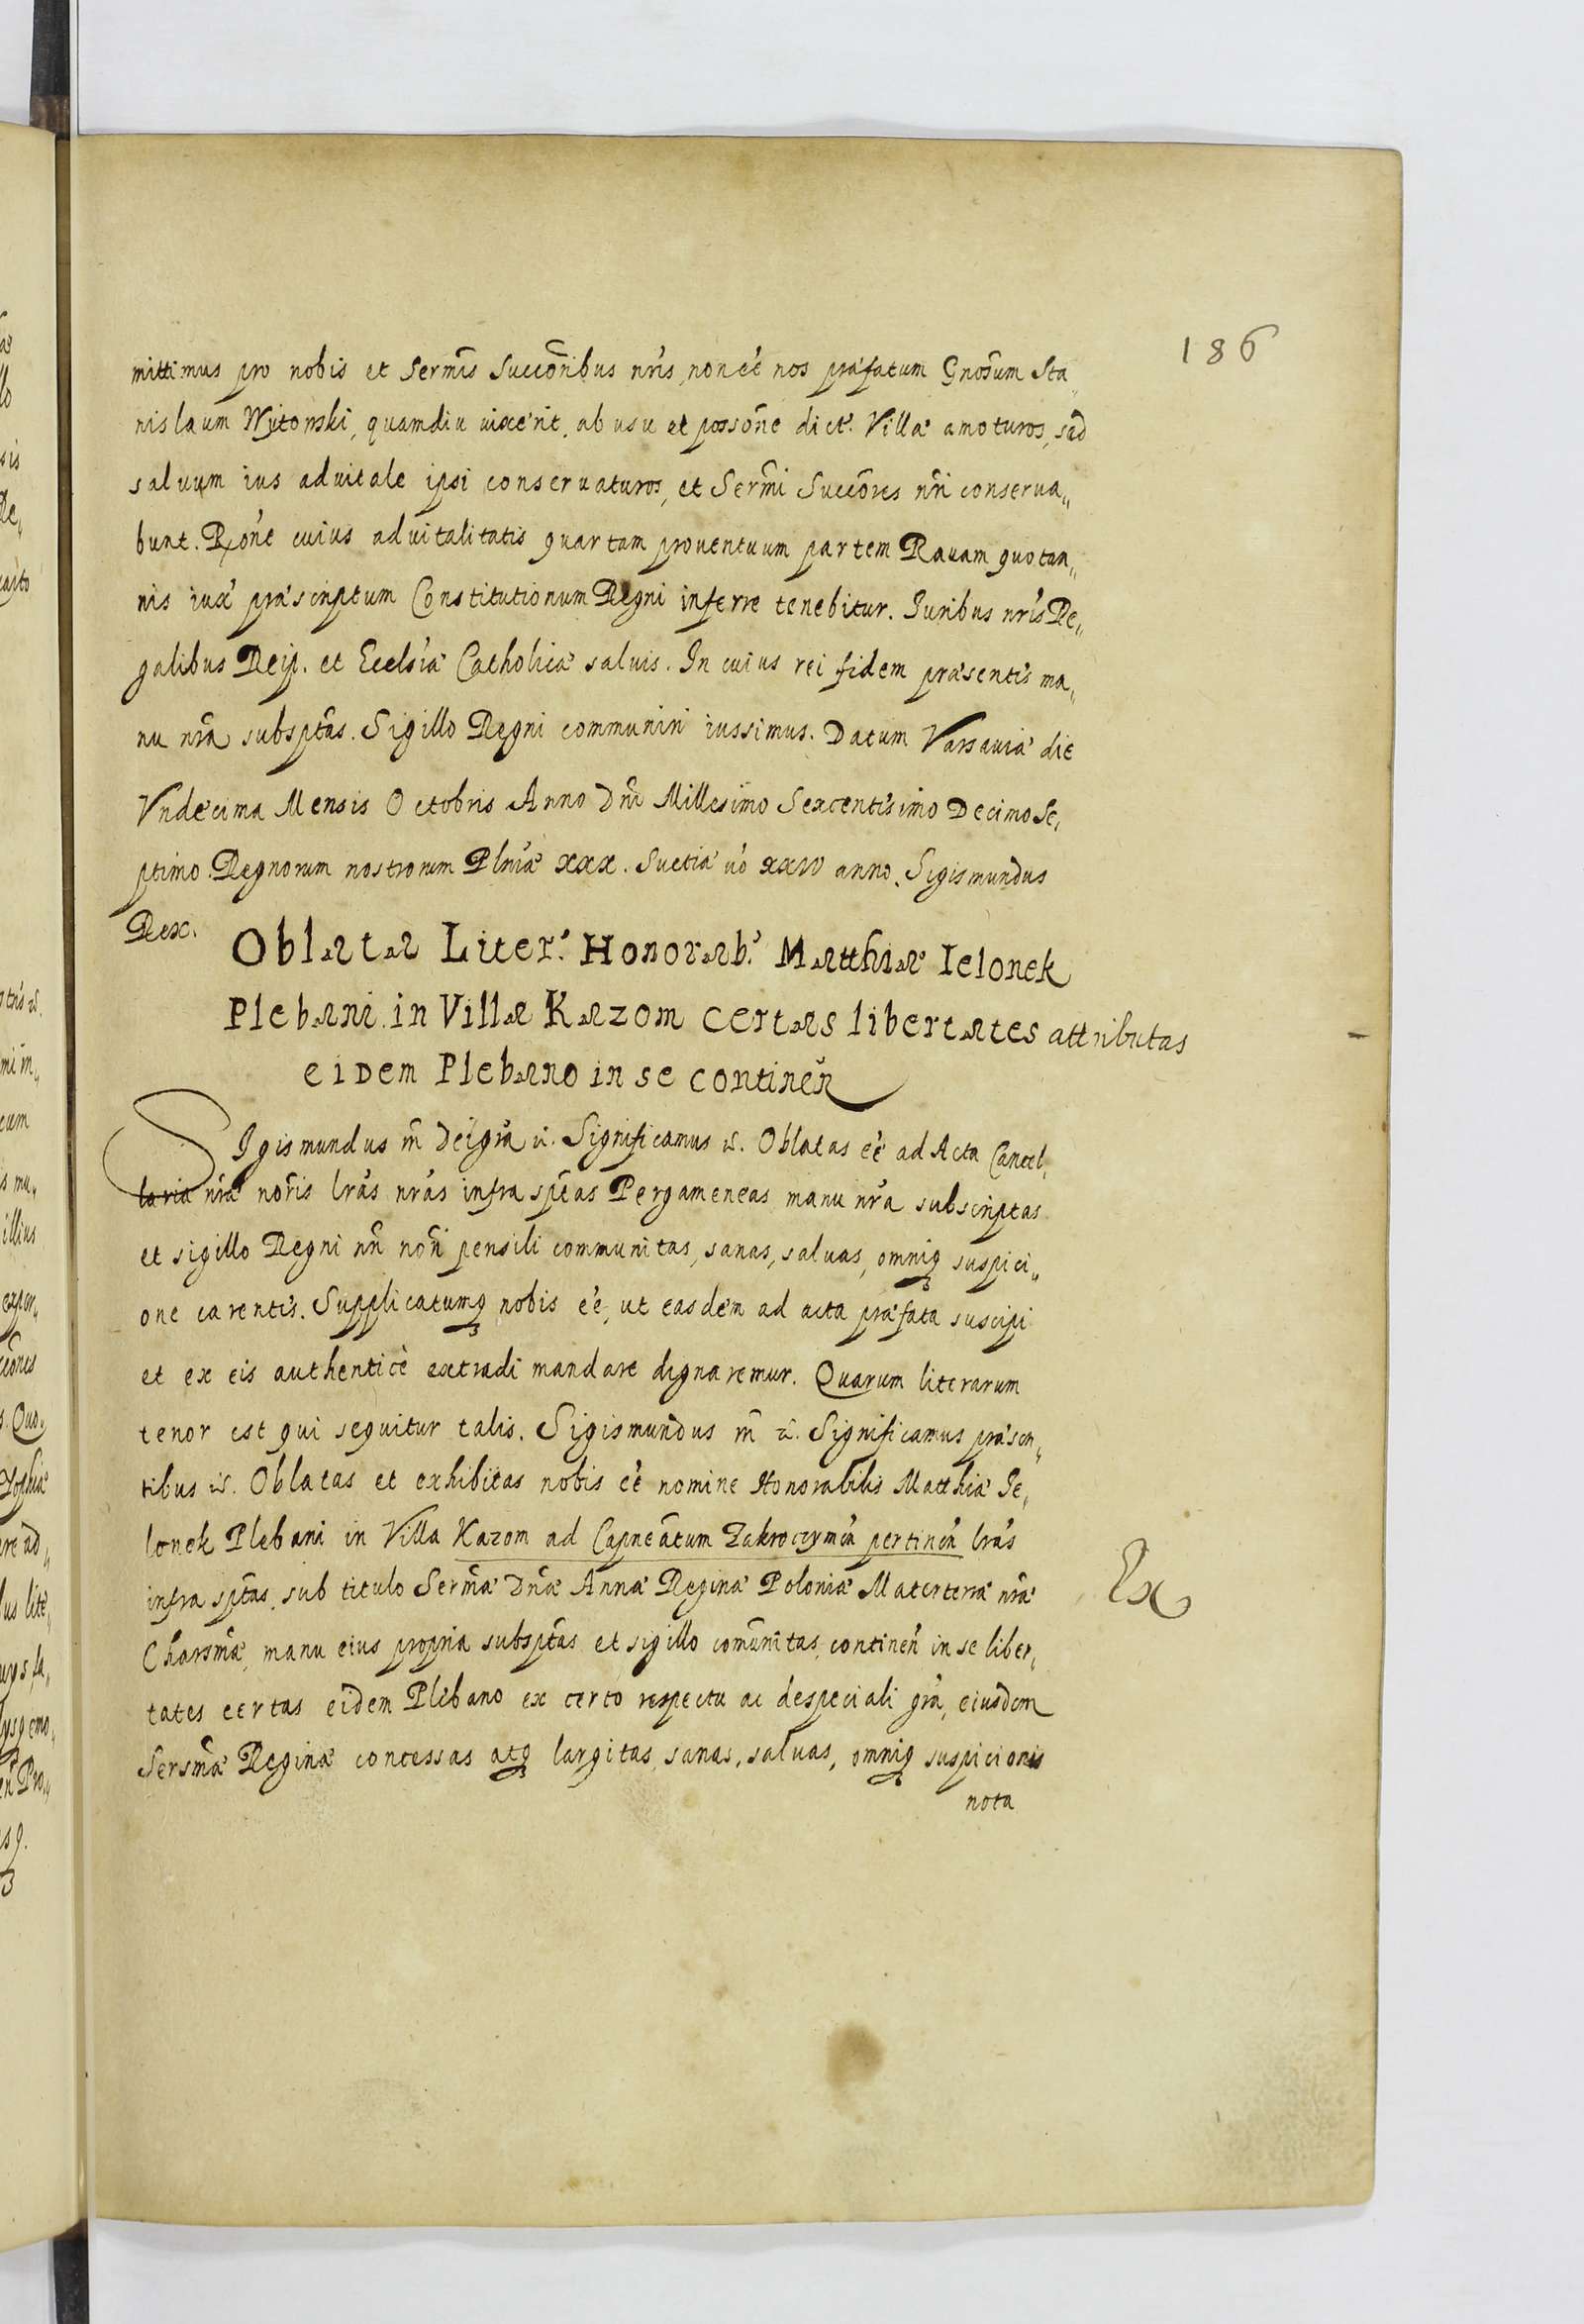 186
mittimus pro nobis et Sermis Succoribus nris, non eē nos præfatum Gnosum Sta„
nislaum Wytonski, quamdiu vixerit, ab usu et possone dictæ Villæ amoturos, sed
salvum ius aduitale ipsi conseruaturos, et Sermi Succores nri conserua„
bunt. Rone cuius aduitalitatis quartam prouentuum partem Rauam quotan„
nis iuxē præscriptum Constitutionum Regni inferre tenebitur. Juribus nris Re„
galibus Reip. et Ecclsiæ Catholicæ saluis. In cuius rei fidem præsentes ma„
nu nra subsptas. Sigillo Regni communiri iussimus. Datum Varsauiæ die
Vndecima Mensis Octobris Anno Dni Millesimo Sexcentesimo Decimo Se„
ptimo. Regnorum nostrorum Plniæ xxx. Suetiæ uo xxiv anno. Sigismundus
Rex.
Oblata Liter. Honorab. Matthiæ Ielonek
Plebani in Villa Kazom certas libertates attributas
eidem Plebano in se continen
Sigismundus m̄ Dei gra &. Significamus &. Oblatas eē ad Acta Cancel„
lariæ nræ noris lras nras infra sptas Pergameneas manu nra subscriptas
et sigillo Regni nri nori pensili communitas, sanas, saluas, omniq suspici„
one carentes. Supplicatumq nobis eē, ut easdem ad acta præfata suscipi
et ex eis authenticè extradi mandare dignaremur. Quarum literarum
tenor est qui sequitur talis. Sigismundus m̄ &. Significamus præsen„
tibus &. Oblatas et exhibitas nobis eē nomine Honorabilis Matthiæ Je„
lonek Plebani in Villa Kazom ad Capneatum Zakroczymen pertinen lras
infra sptas, sub titulo Sermæ Dnæ Annæ Reginæ Poloniæ Materteræ nræ
Charsmæ, manu eius propria subsptas et sigillo comunitas, continen in se liber„
tates certas eidem Plebano ex certo respectu ac de speciali gra, eiusdem
Sersmæ Reginæ concessas atq largitas, sanas, saluas, omniq suspicionis
nota
Ex